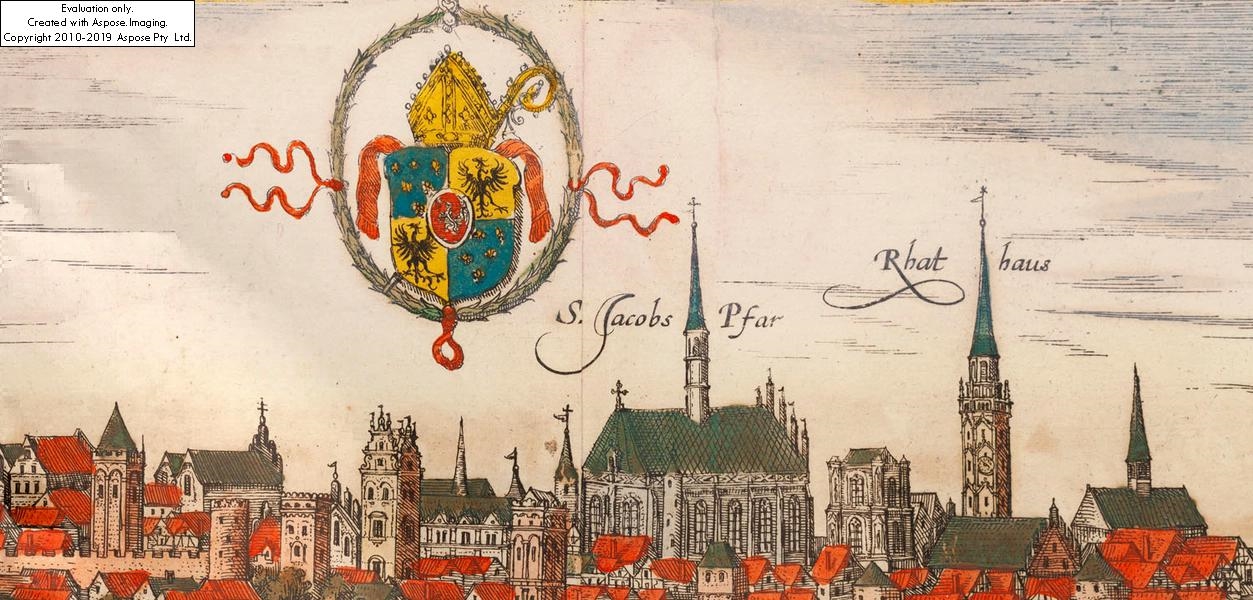 Evaluation only.
Created with Aspose.Imaging.
Copyright 2010-2019 Aspose Pty Ltd.
S. Jacobs Pfar
Rhat haus